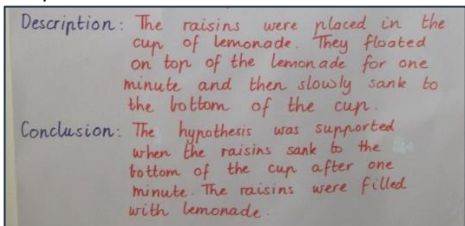 Description: The raisins were placed in the
cup of lemonade. They floated
on top of the lemonade for one
minute and then slowly sank to
the bottom of the cup.
Conclusion: The hypothesis was supported
when the raisins sank to the
bottom of the cup after one
minute. The raisins were filled
with lemonade.